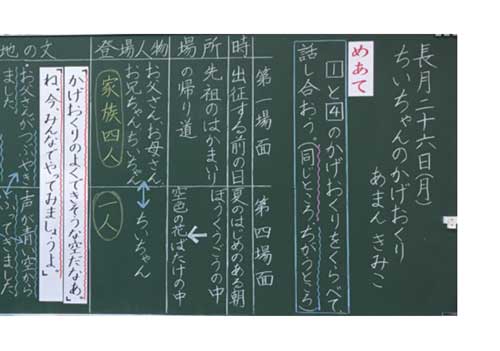 長月二十六日(月)
ちいちゃんのかげおくり
あまん きみこ
めあて
1と4のかげおくりをくらべて、
話し合おう。(同じところ、ちがうところ)
第一場面
第四場面
時
出征する前の日
夏のはじめのある朝
場所
先祖のはかまいり
の帰り道
ぼうくうごうの中
空色の花ばたけの中
登場人物
お父さん、お母さん、
お兄ちゃん、ちいちゃん
家族四人
ちいちゃん
一人
「かげおくりのよくできそうな空だなあ。」
「ね。今、みんなでやってみましょうよ。」
地の文
・お父さんがつぶやき
ました。
声が青い空から
ふってきました